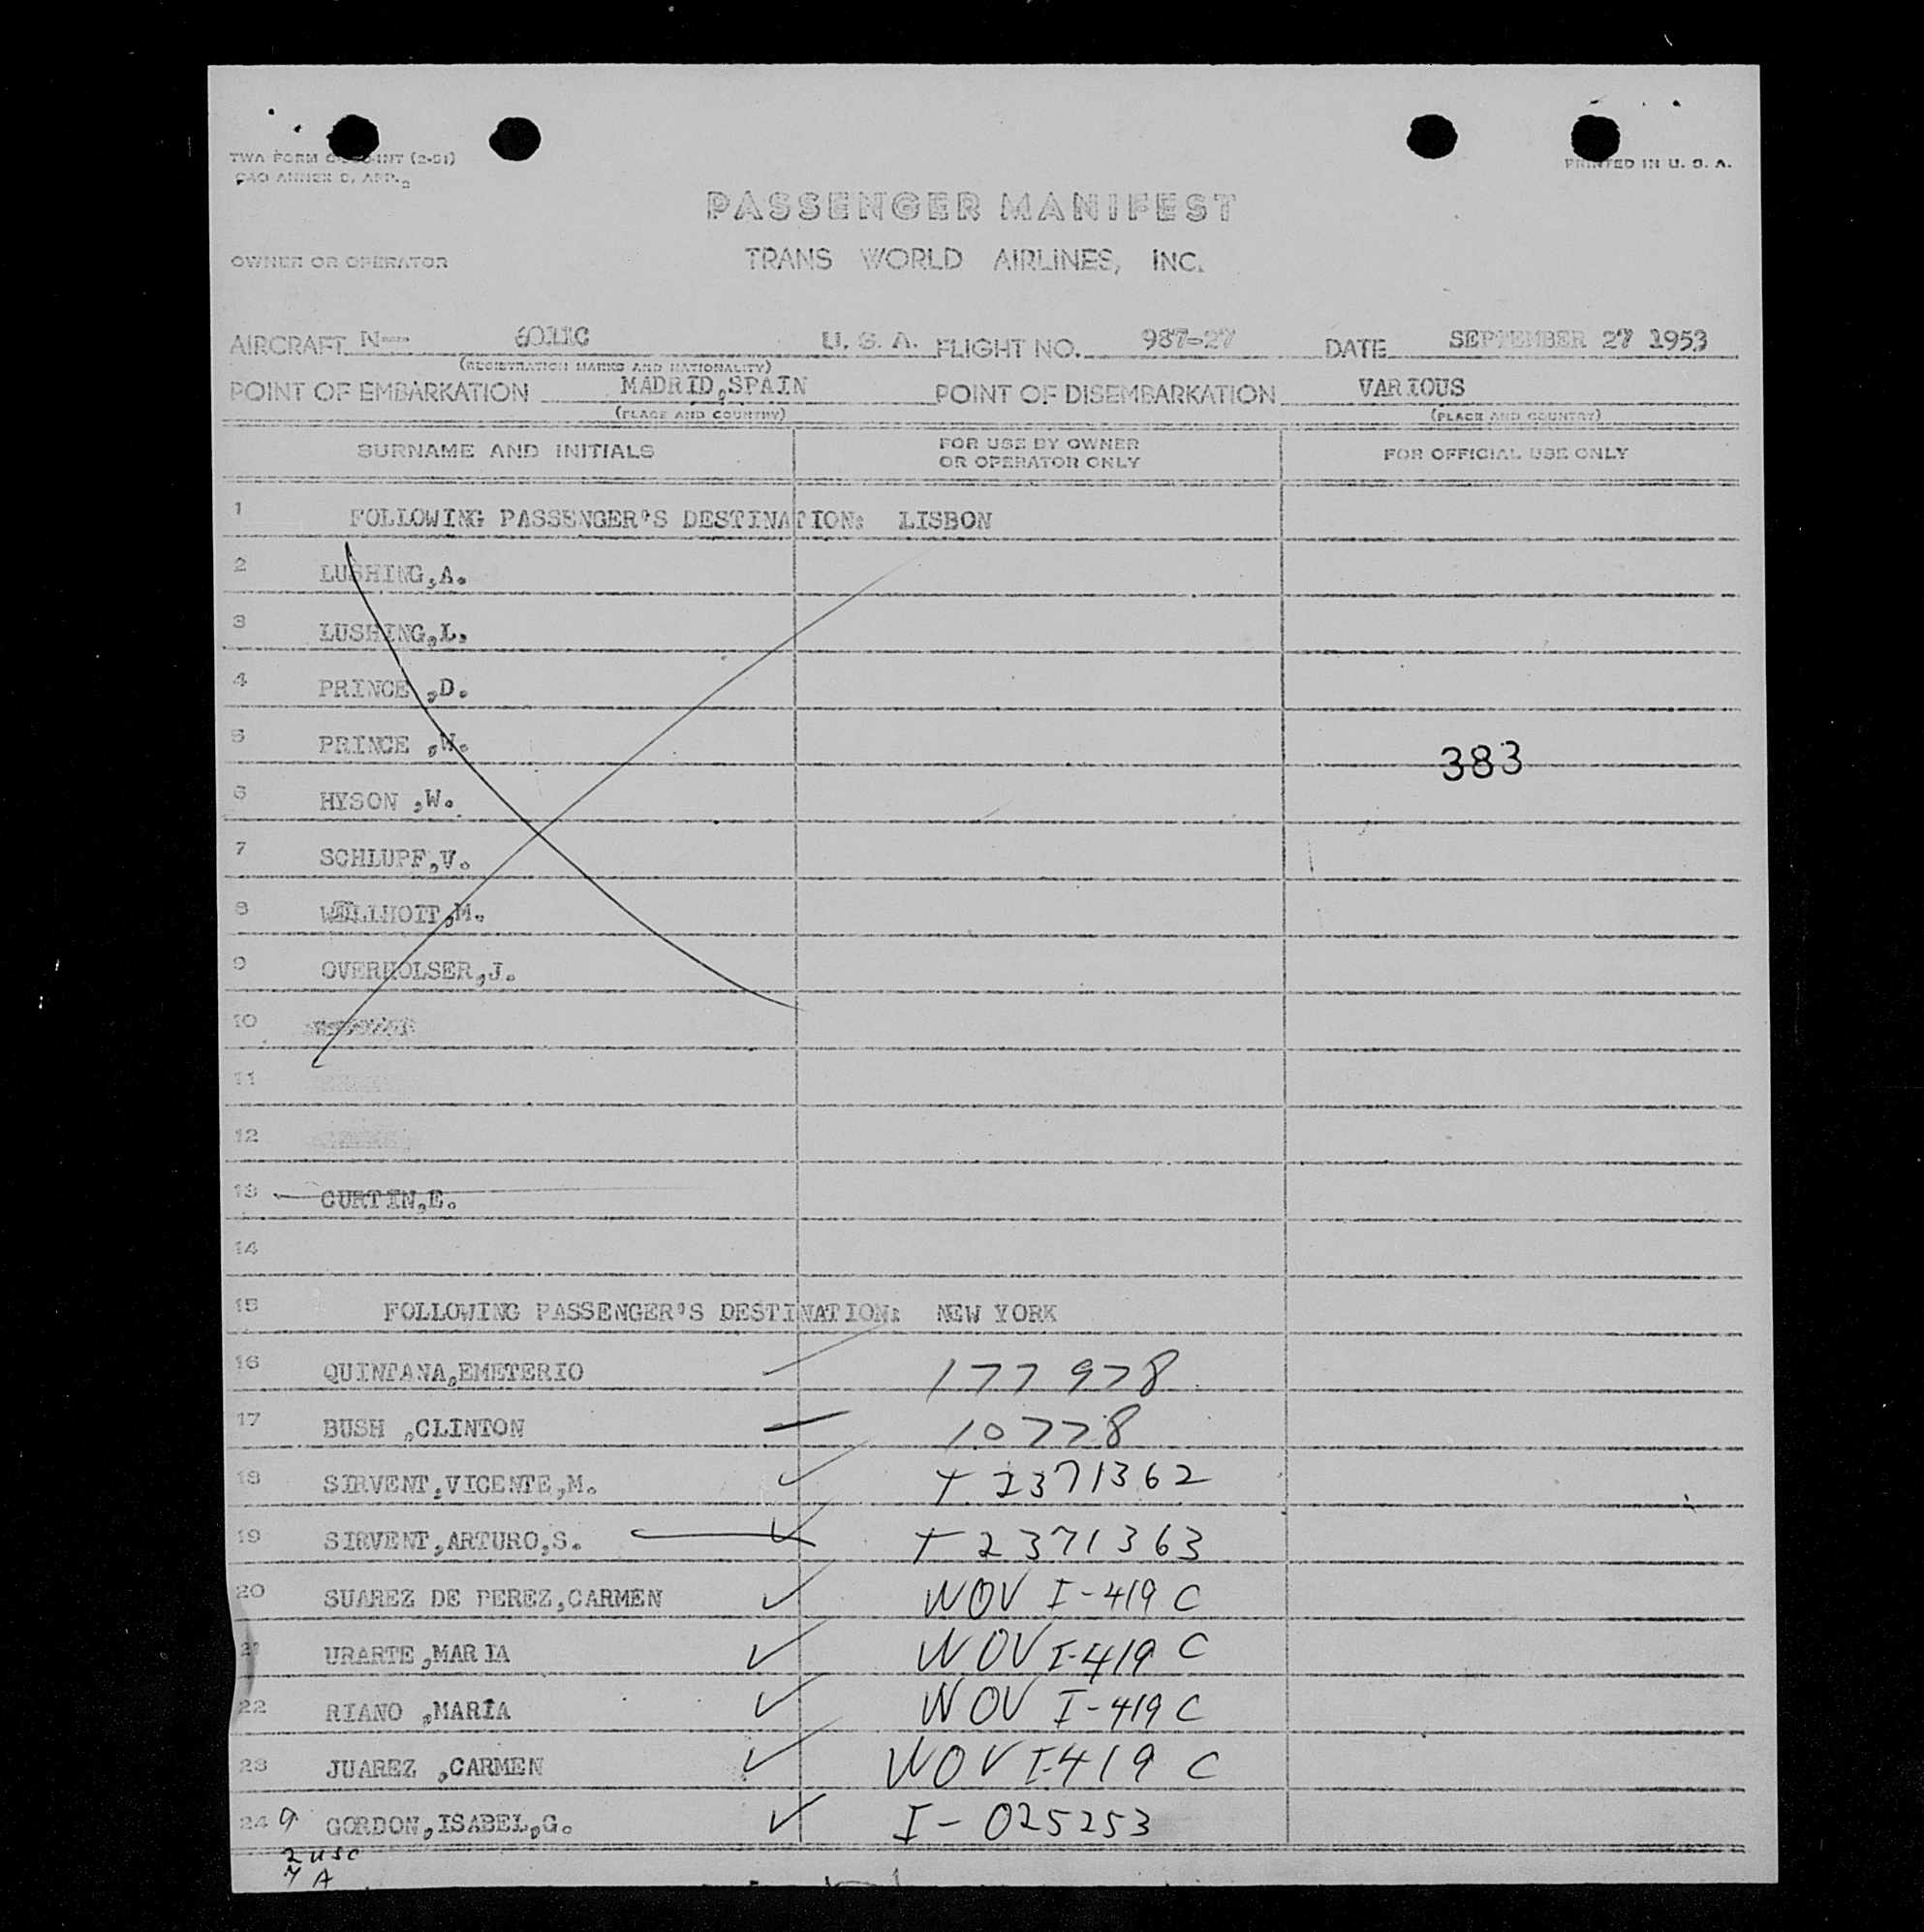 TWA FORM INT (2-51)
PRINTED IN U. S. A.
CAO ANNEX 9, APP. 2
PASSENGER MANIFEST
OWNER OR OPERATOR TRANS WORLD AIRLINES, INC.
AIRCRAFT N-- 6011C U. S. A. FLIGHT NO. 987-27 DATE SEPTEMBER 27 1953
(REGISTRATION MARKS AND NATIONALITY)
POINT OF EMBARKATION MADRID,SPAIN POINT OF DISEMBARKATION VARIOUS
(PLACE AND COUNTRY) (PLACE AND COUNTRY)
SURNAME AND INITIALS FOR USE BY OWNER OR OPERATOR ONLY FOR OFFICIAL USE ONLY
1 FOLLOWING PASSENGER'S DESTINATION: LISBON
2 LUSHING,A.
3 LUSHING,L.
4 PRINCE ,D.
5 PRINCE ,W. 383
6 HYSON ,W.
7 SCHLUPF,V.
8 M.
9 OVERHOLSER,J.
10
11
12
13 CURTIN,E.
14
15 FOLLOWING PASSENGER'S DESTINATION: NEW YORK
16 QUINTANA,EMETERIO 177978
17 BUSH ,CLINTON 10778
18 SIRVENT,VICENTE,M. ✓ T 2371362
19 SIRVENT,ARTURO,S. ✓ T 2371363
20 SUAREZ DE PEREZ,CARMEN ✓ WOV I-419 C
21 URARTE ,MARIA ✓ WOV I-419 C
22 RIANO ,MARIA ✓ WOV I-419 C
23 JUAREZ ,CARMEN ✓ WOV I-419 C
24 9 GORDON,ISABEL,G. ✓ I-025253
2 USC
7 A